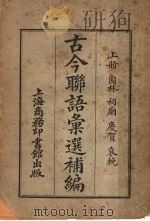 上冊 園林 祠廟 慶賀 哀輓
古今聯語彙選補編
上海商務印書館出版